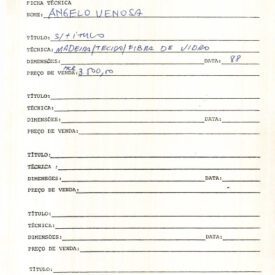 FICHA TÉCNICA
NOME: ANGELO VENOSA
TÍTULO: S/TÍTULO
TÉCNICA: MADEIRA/TECIDO/FIBRA DE VIDRO
DIMENSÕES: DATA: 88
PREÇO DE VENDA: 3.500,00
TÍTULO:
TÉCNICA:
DIMENSÕES: DATA:
PREÇO DE VENDA:
TÍTULO:
TÉCNICA:
DIMENSÕES: DATA:
PREÇO DE VENDA:
TÍTULO:
TÉCNICA:
DIMENSÕES: DATA:
PREÇO DE VENDA:
TÍTULO: